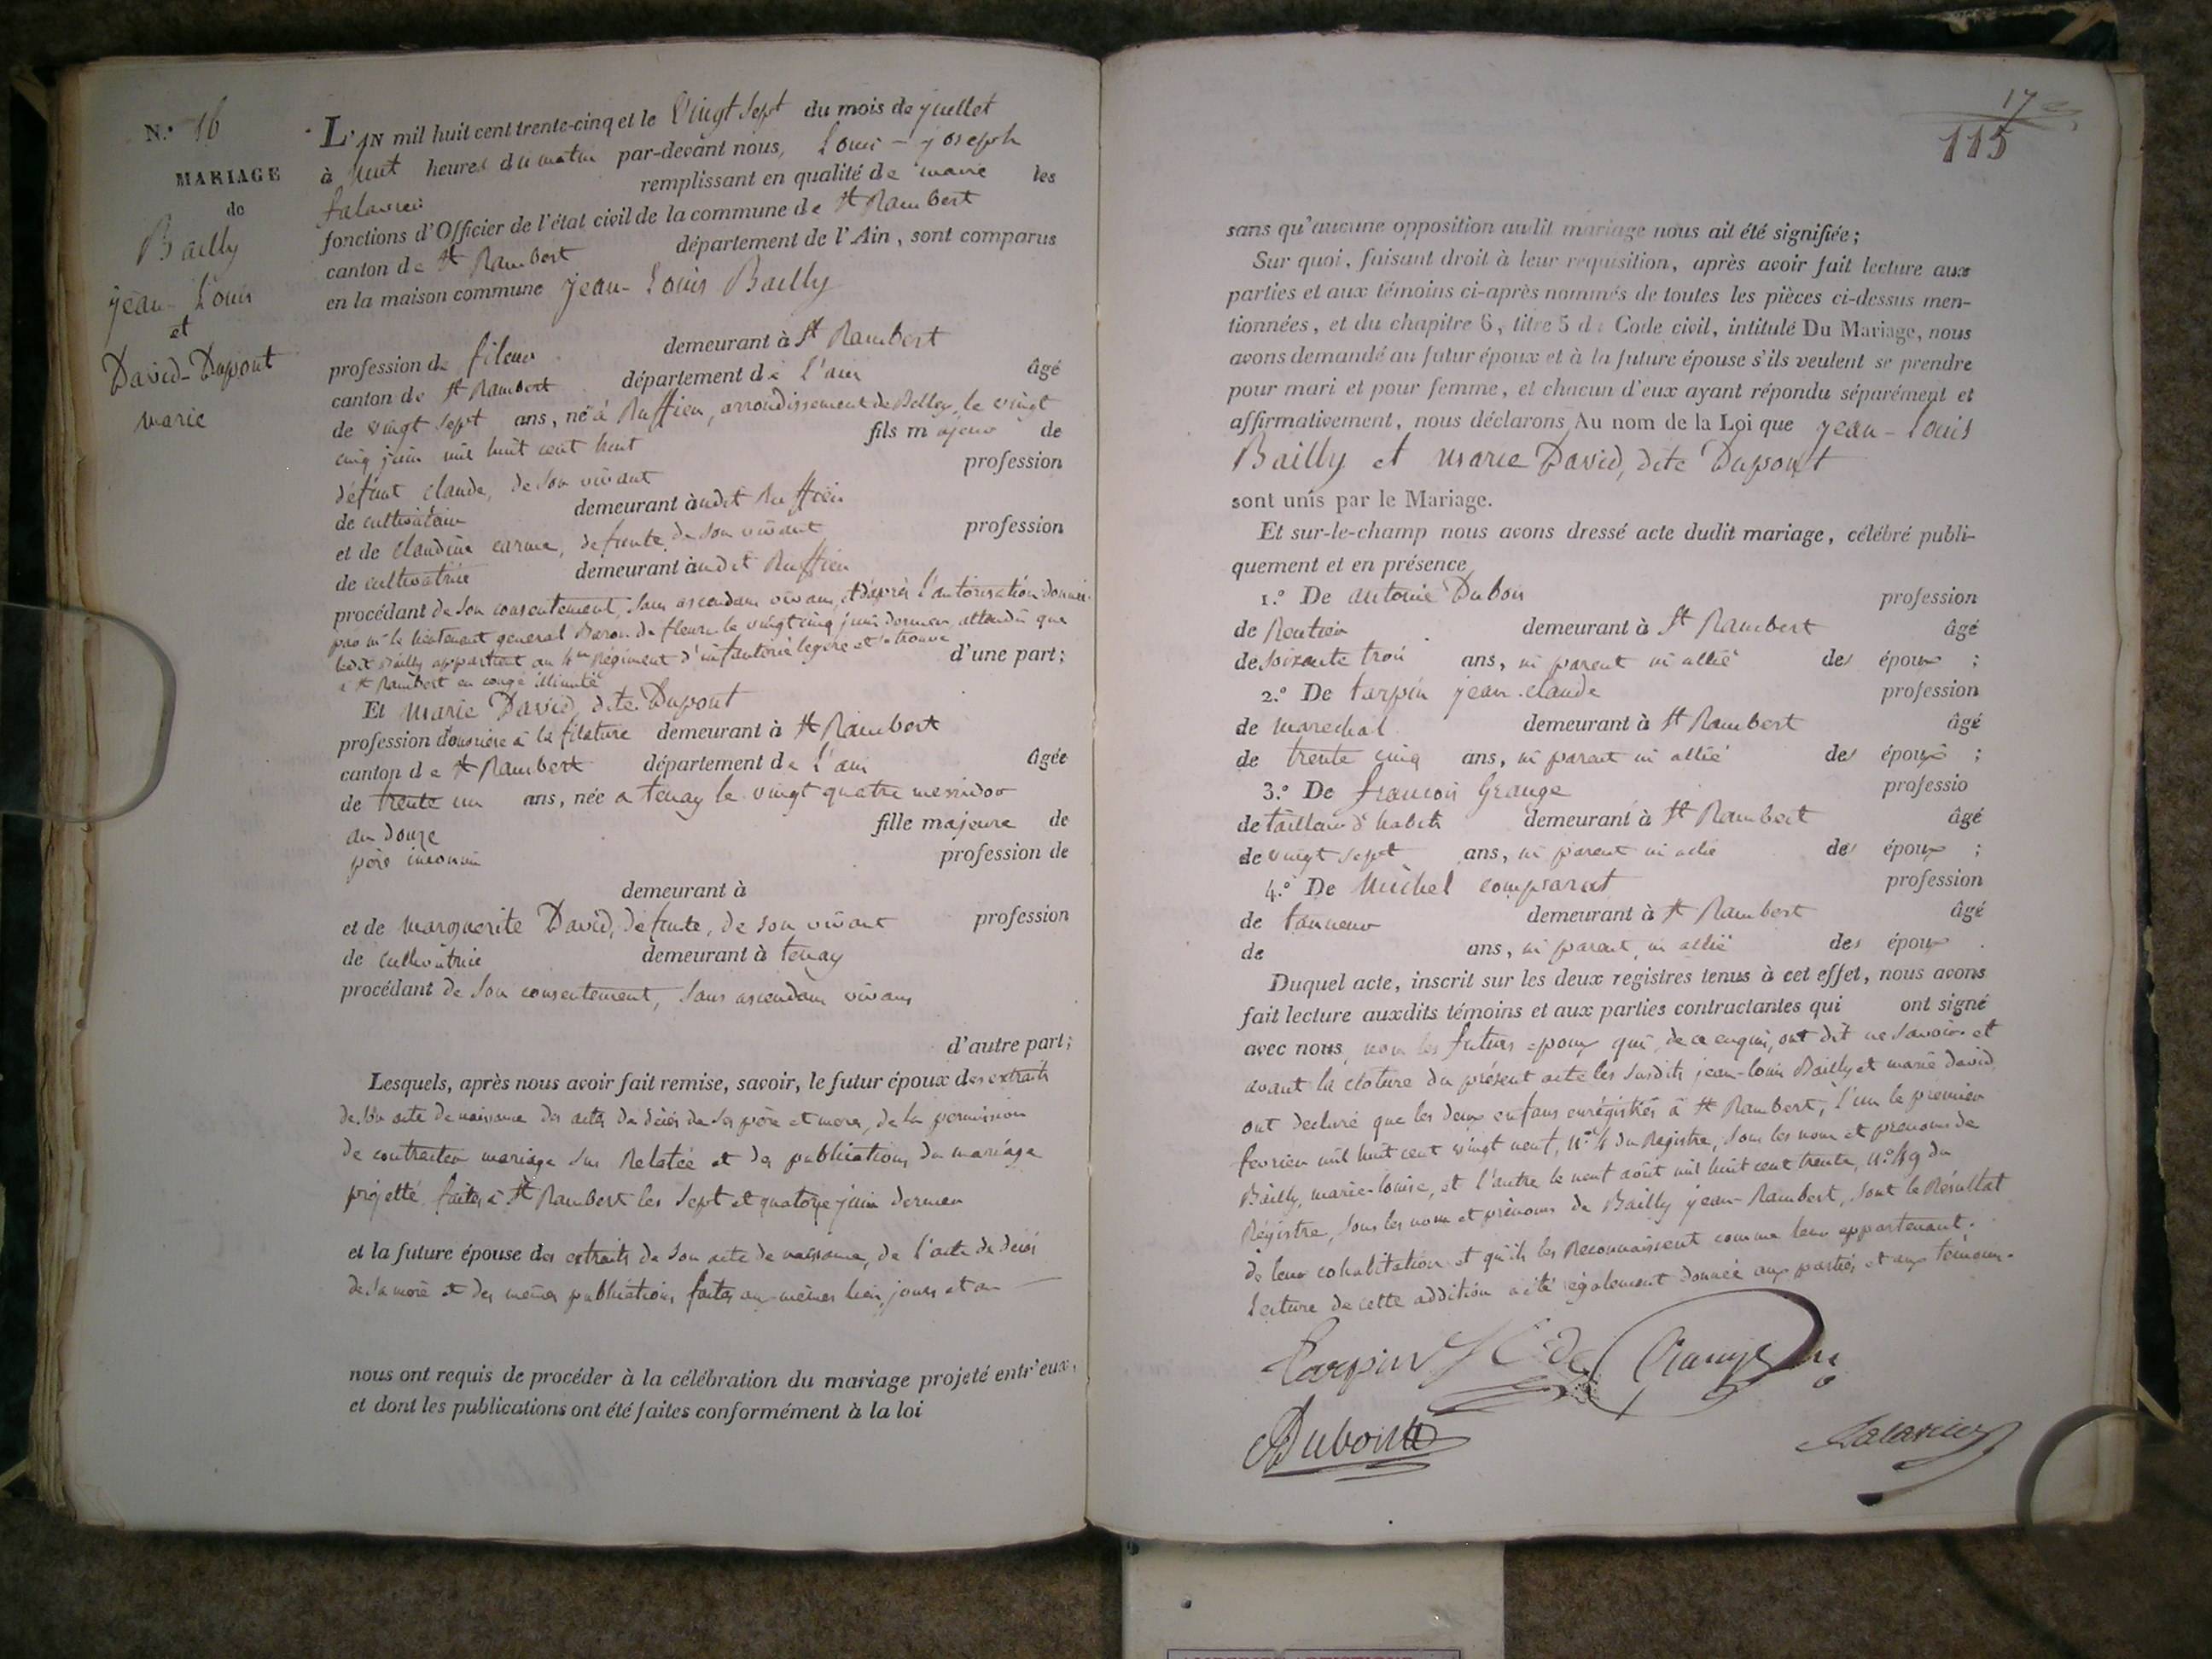 N.° 16
MARIAGE
de
Bailly
jean-Louis
et
David-Dupont
marie
L'AN mil huit cent trente-cinq et le vingt sept du mois de juillet
à huit heures du matin par-devant nous, Louis-joseph
remplissant en qualité de maire les
fonctions d'Officier de l'état civil de la commune de St Rambert
canton de St Rambert département de l'Ain, sont comparus
en la maison commune jean-Louis Bailly
profession de fileur demeurant à St Rambert
canton de St Rambert département de l'ain âgé
de vingt sept ans, né à Ruffieu, arrondissement de Belley, le vingt
cinq juin mil huit cent huit fils majeur de
défunt claude, de son vivant profession
de cultivateur demeurant audit Ruffieu
et de claudine carme, defunte de son vivant profession
de cultivatrice demeurant audit Ruffieu
procédant de son consentement, sans ascendans vivans, et d'après l'autorisation donnée
par mr le lieutenant general Baron de fleury le vingt cinq juin dernier, attendu que
ledit Bailly appartient au 4me Régiment d'infanterie légère et se trouve
à St Rambert en congé illimité d'une part;
Et marie David, dite Dupont
profession d'ouvrière à la filature demeurant à St Rambert
canton de St Rambert département de l'ain âgée
de trente un ans, née à tenay le vingt quatre messidor
an douze fille majeure de
père inconnu profession de
demeurant à
et de marguerite David, défunte, de son vivant profession
de cultivatrice demeurant à tenay
procédant de son consentement, sans ascendans vivans
d'autre part;
Lesquels, après nous avoir fait remise, savoir, le futur époux des extraits
de son acte de naissance des actes de décès de ses père et mere, de la permission
de contracter mariage sus Relatée et des publications du mariage
projetté faites à St Rambert les sept et quatorze juin dernier
et la future épouse des extraits de son acte de naissance, de l'acte de décès
de sa mère et des mêmes publications faites aux mêmes lieu, jours et an
nous ont requis de procéder à la célébration du mariage projeté entr'eux,
et dont les publications ont été faites conformément à la loi
17
115
sans qu'aucune opposition audit mariage nous ait été signifiée;
Sur quoi, faisant droit à leur requisition, après avoir fait lecture aux
parties et aux témoins ci-après nommés de toutes les pièces ci-dessus men-
tionnées, et du chapitre 6, titre 5 du Code civil, intitulé Du Mariage, nous
avons demandé au futur époux et à la future épouse s'ils veulent se prendre
pour mari et pour femme, et chacun d'eux ayant répondu séparément et
affirmativement, nous déclarons Au nom de la Loi que jean-Louis
Bailly et marie David, dite Dupont
sont unis par le Mariage.
Et sur-le-champ nous avons dressé acte dudit mariage, célébré publi-
quement et en présence
1.° De antoine Dubois profession
de Rentier demeurant à St Rambert âgé
de soixante trois ans, ni parent ni allié des époux ;
2.° De tarpin jean-claude profession
de marechal demeurant à St Rambert âgé
de trente cinq ans, ni parent ni allié des époux ;
3.° De francois Grange professio
de tailleur d'habits demeurant à St Rambert âgé
de vingt sept ans, ni parent ni allié des époux ;
4.° De Michel comparat profession
de tanneur demeurant à St Rambert âgé
de ans, ni parent ni allié des époux .
Duquel acte, inscrit sur les deux registres tenus à cet effet, nous avons
fait lecture auxdits témoins et aux parties contractantes qui ont signé
avec nous, non les futurs epoux qui, de ce enquis, ont dit ne savoir et
avant la cloture du présent acte les susdits jean-louis Bailly et marie david
ont declaré que les deux enfans enrégistrés à St Rambert, l'un le premier
fevrier mil huit cent vingt neuf, n.° 4 du Registre, sous les nom et prenoms de
Bailly, marie-louise, et l'autre le neuf août mil huit cent trente, n.° 49 du
Régistre, sous les nom et prénoms de Bailly jean-Rambert, sont le Résultat
de leur cohabitation et qu'ils les Reconnaissent comme leur appartenant.
lecture de cette addition a été également donnée aux parties et aux témoins.
Tarpin J C
Grange
Dubois